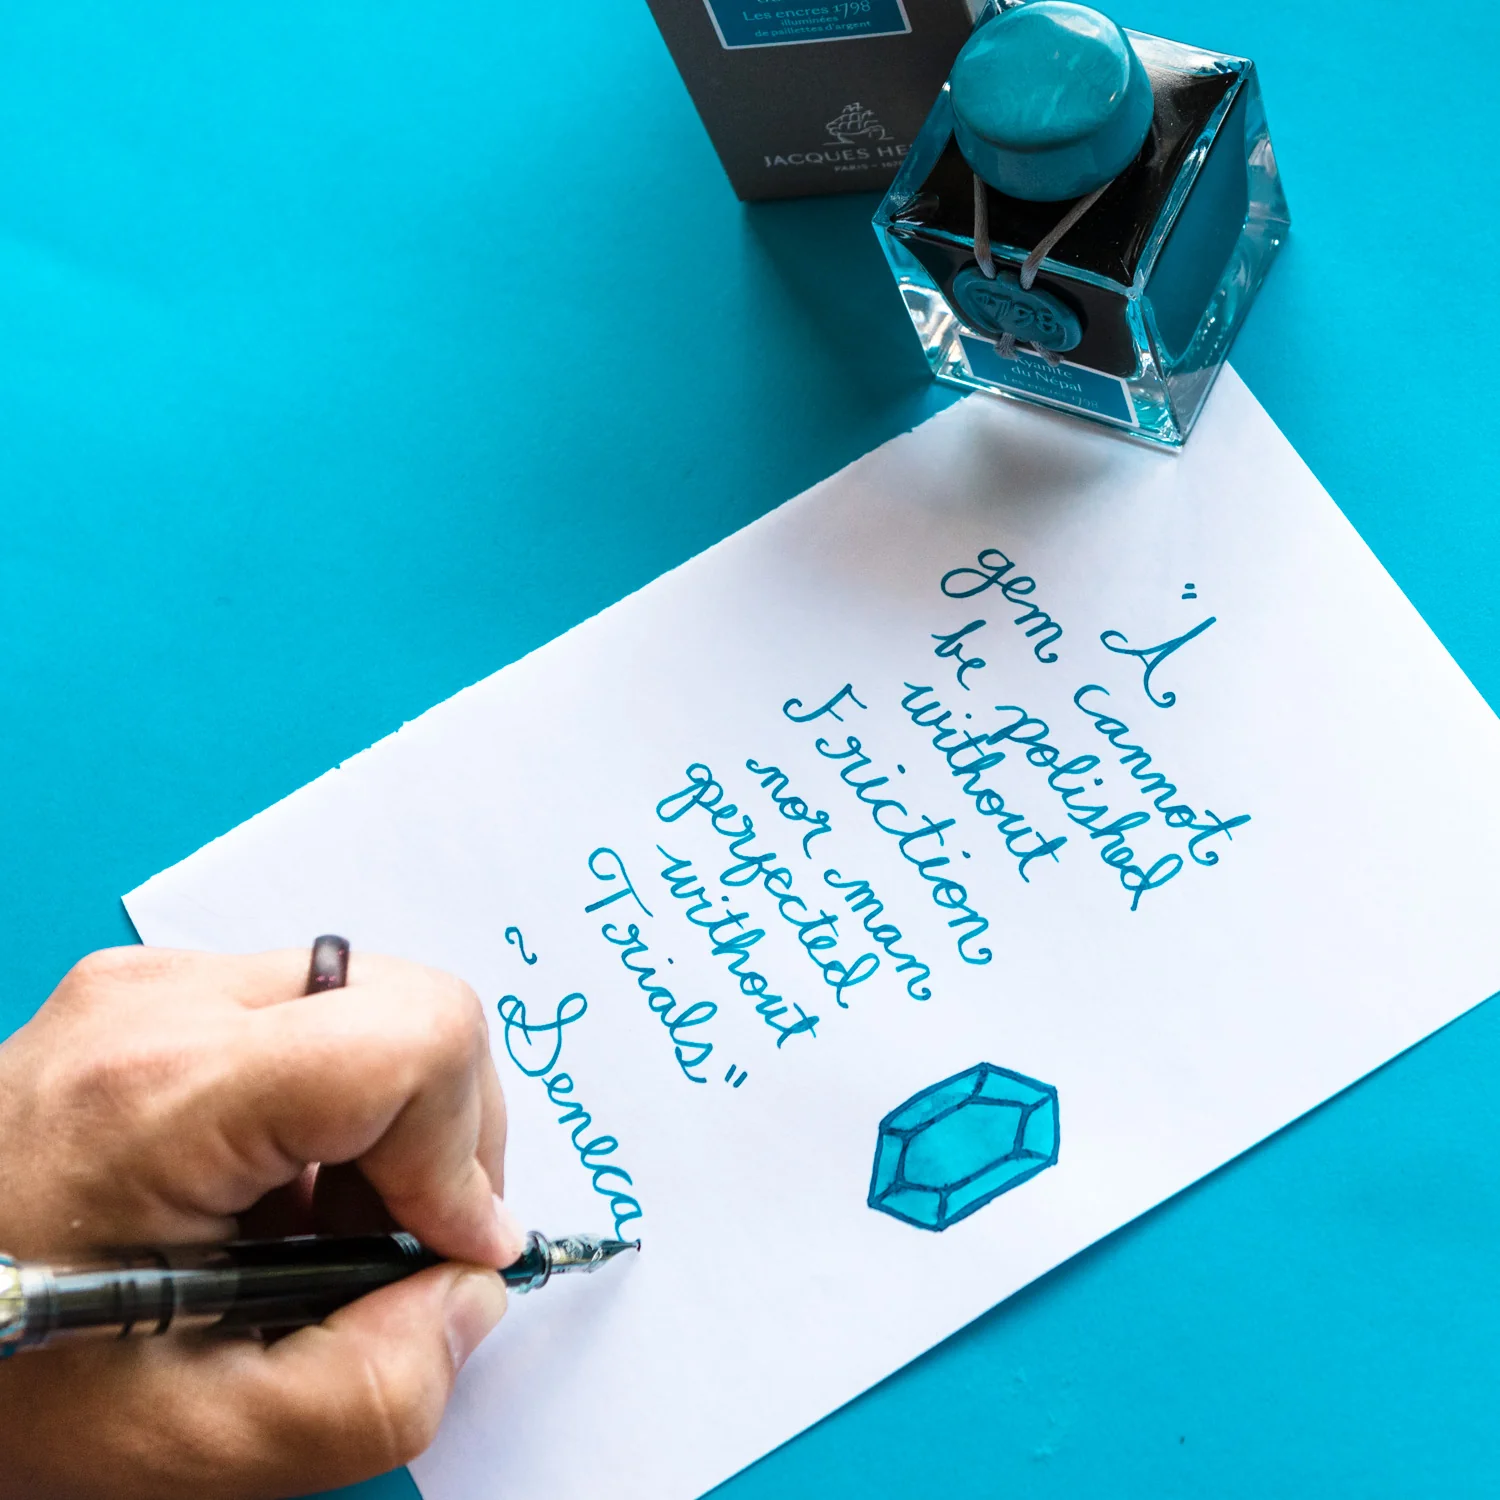 Les encres 1798
illuminées
de paillettes d'argent
JACQUES HE
PARIS - 1670
1798
Kyanite
du Népal
Les encres 1798
"A
gem cannot
be polished
without
Friction
nor man
perfected
without
Trials"
~ Seneca